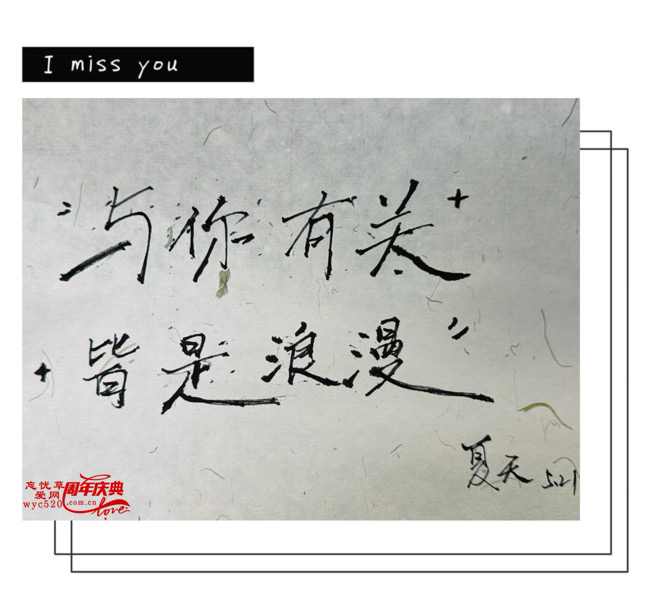 I miss you
“与你有关
皆是浪漫”
夏天 5.21
忘忧草
爱网
wyc520.com.cn
周年庆典
love